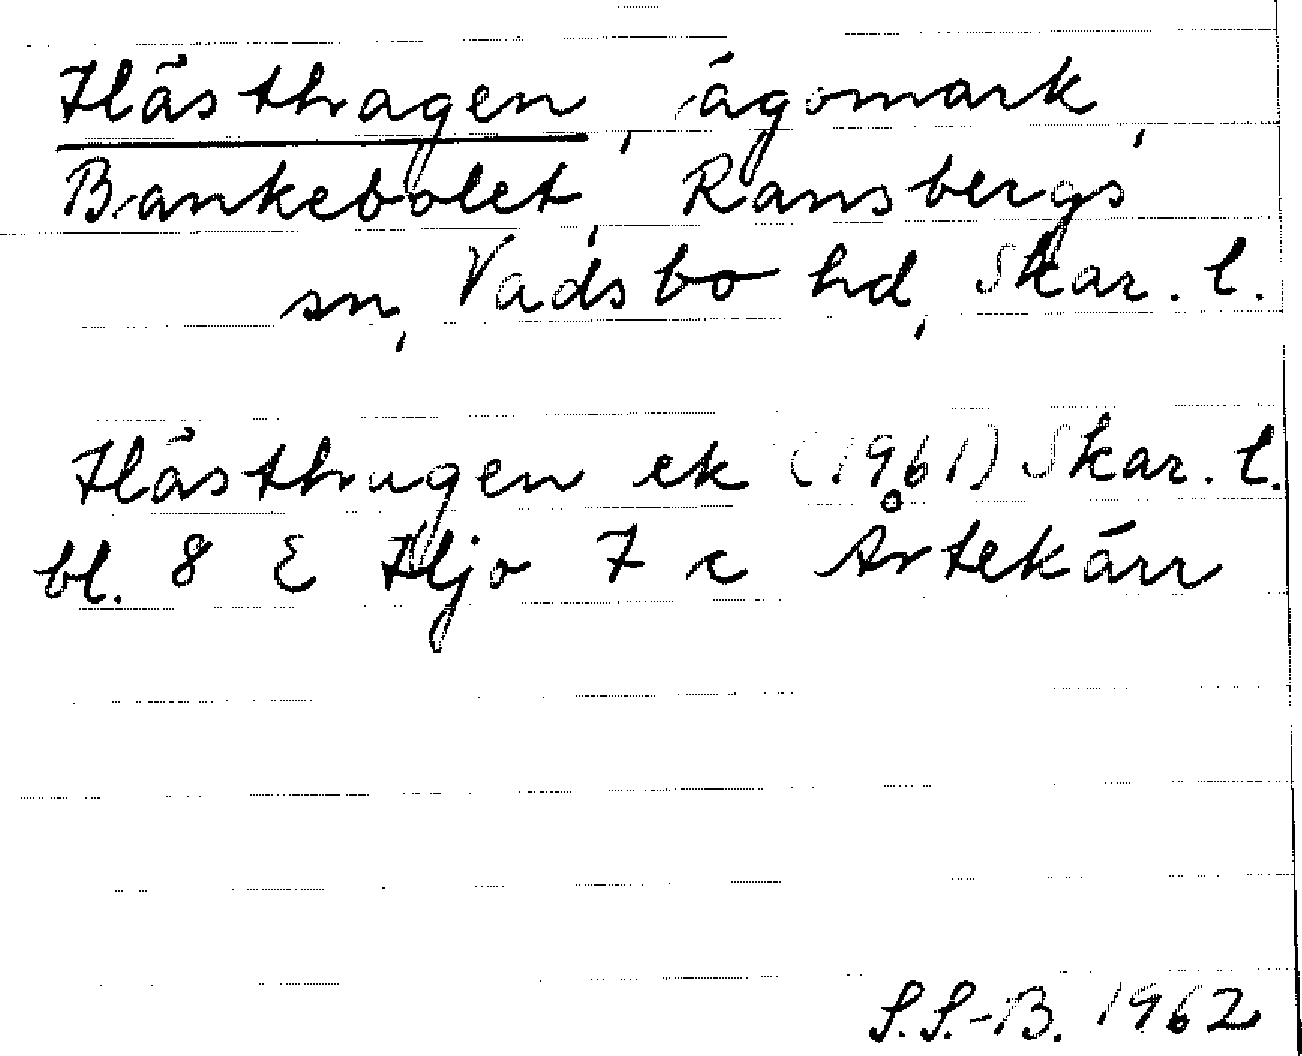 Hästhagen, ägomark,
Bankebolet, Ransbergs
sn, Vadsbo hd, Skar. l.
Hästhagen ek (1961) Skar. l.
bl. 8 E Hjo 7 c Årtekärr
S.S.-B. 1962